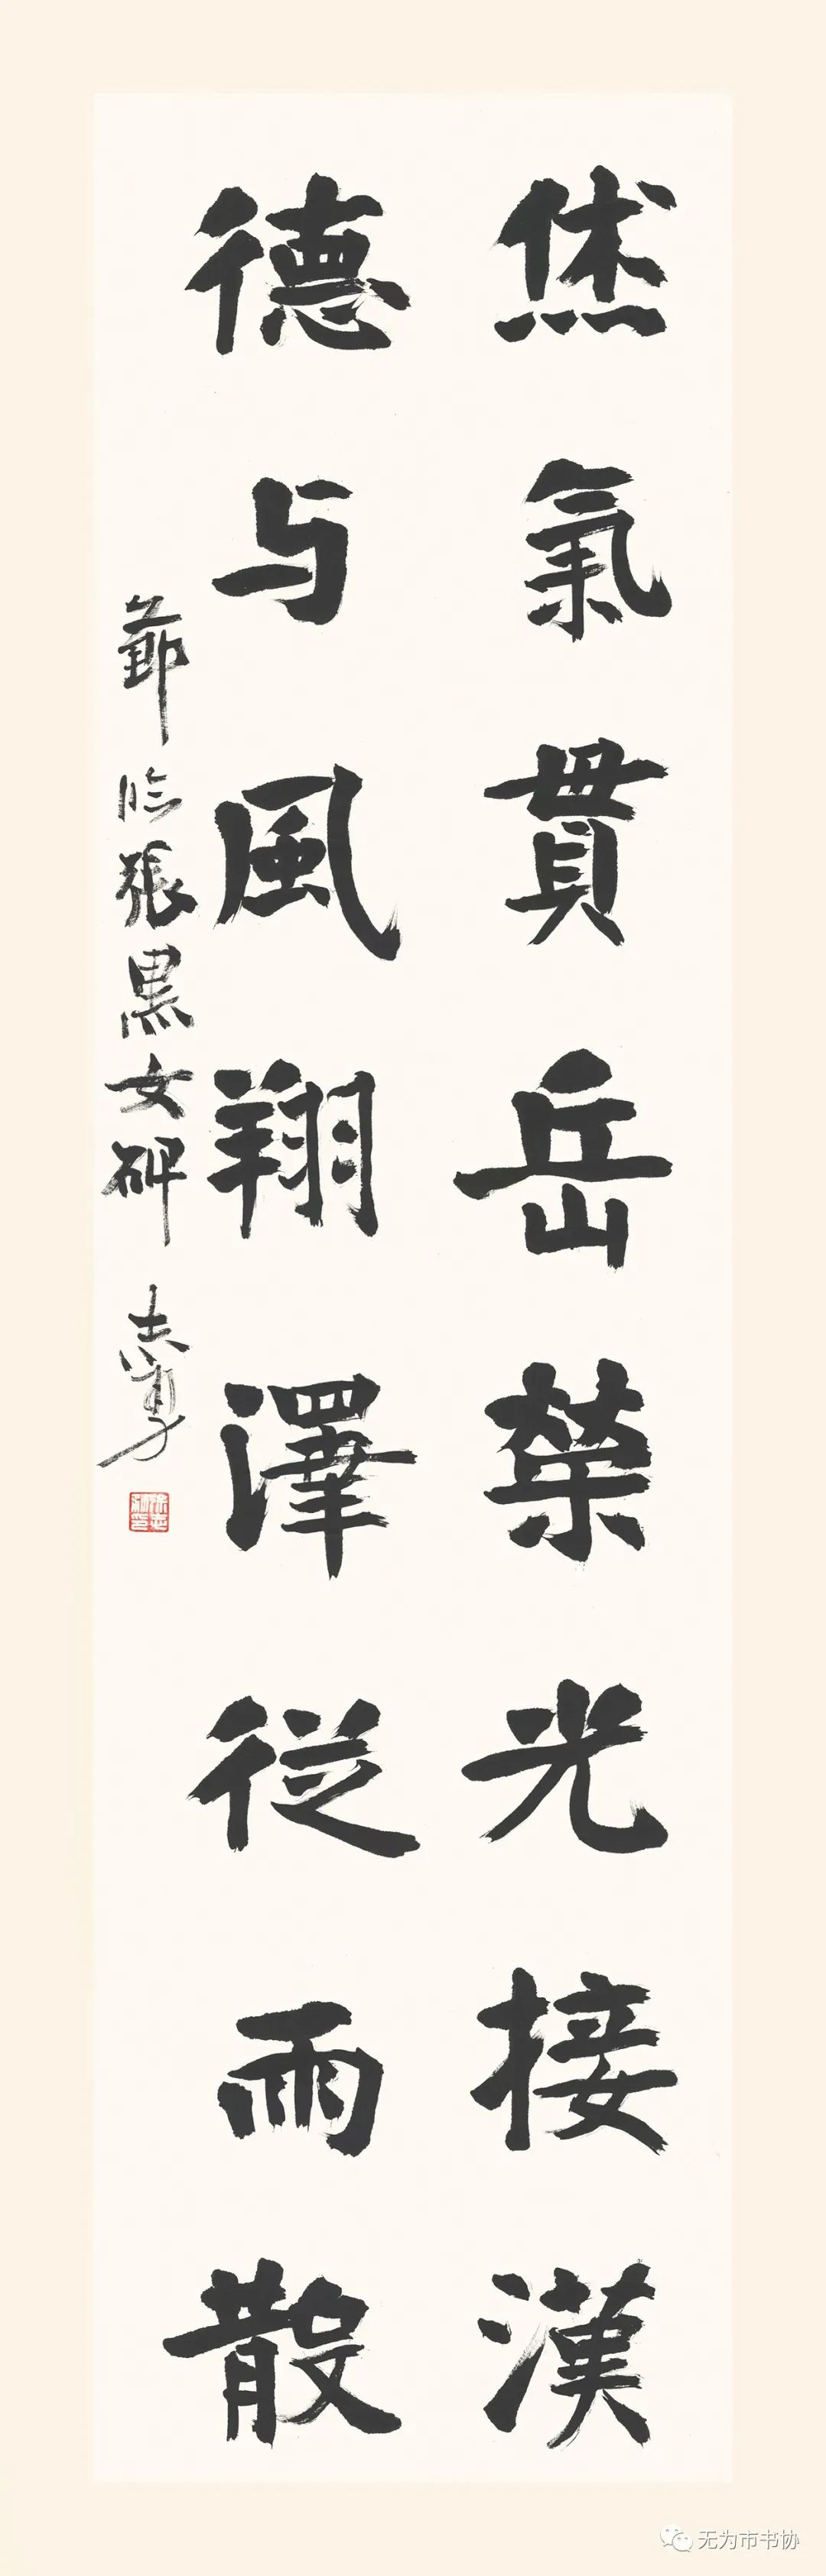 恷氣貫岳榮光接漢
德与風翔澤從雨散
節临張黑女碑 志勇
无为市书协